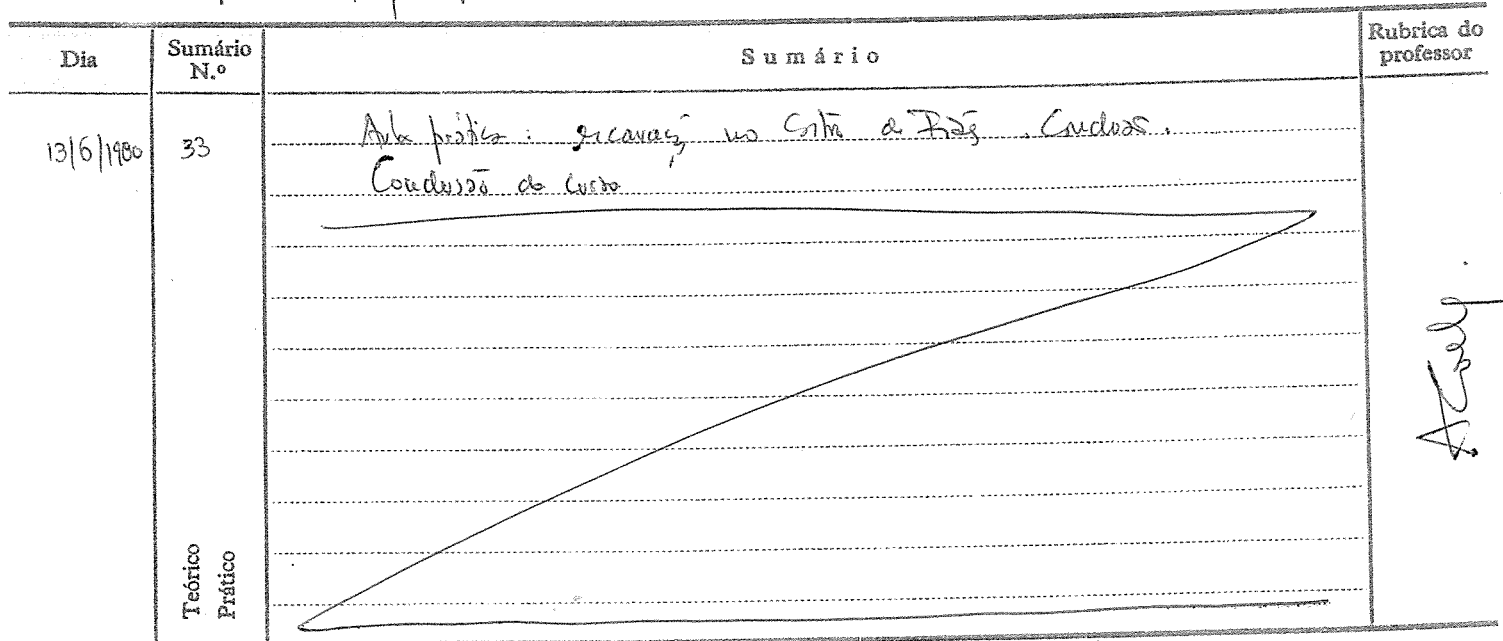 Dia
Sumário
N.º
Sumário
Rubrica do
professor
13/6/1980
33
Aula prática: escavação no . Conclusão.
Conclusão do curso
Teórico
Prático